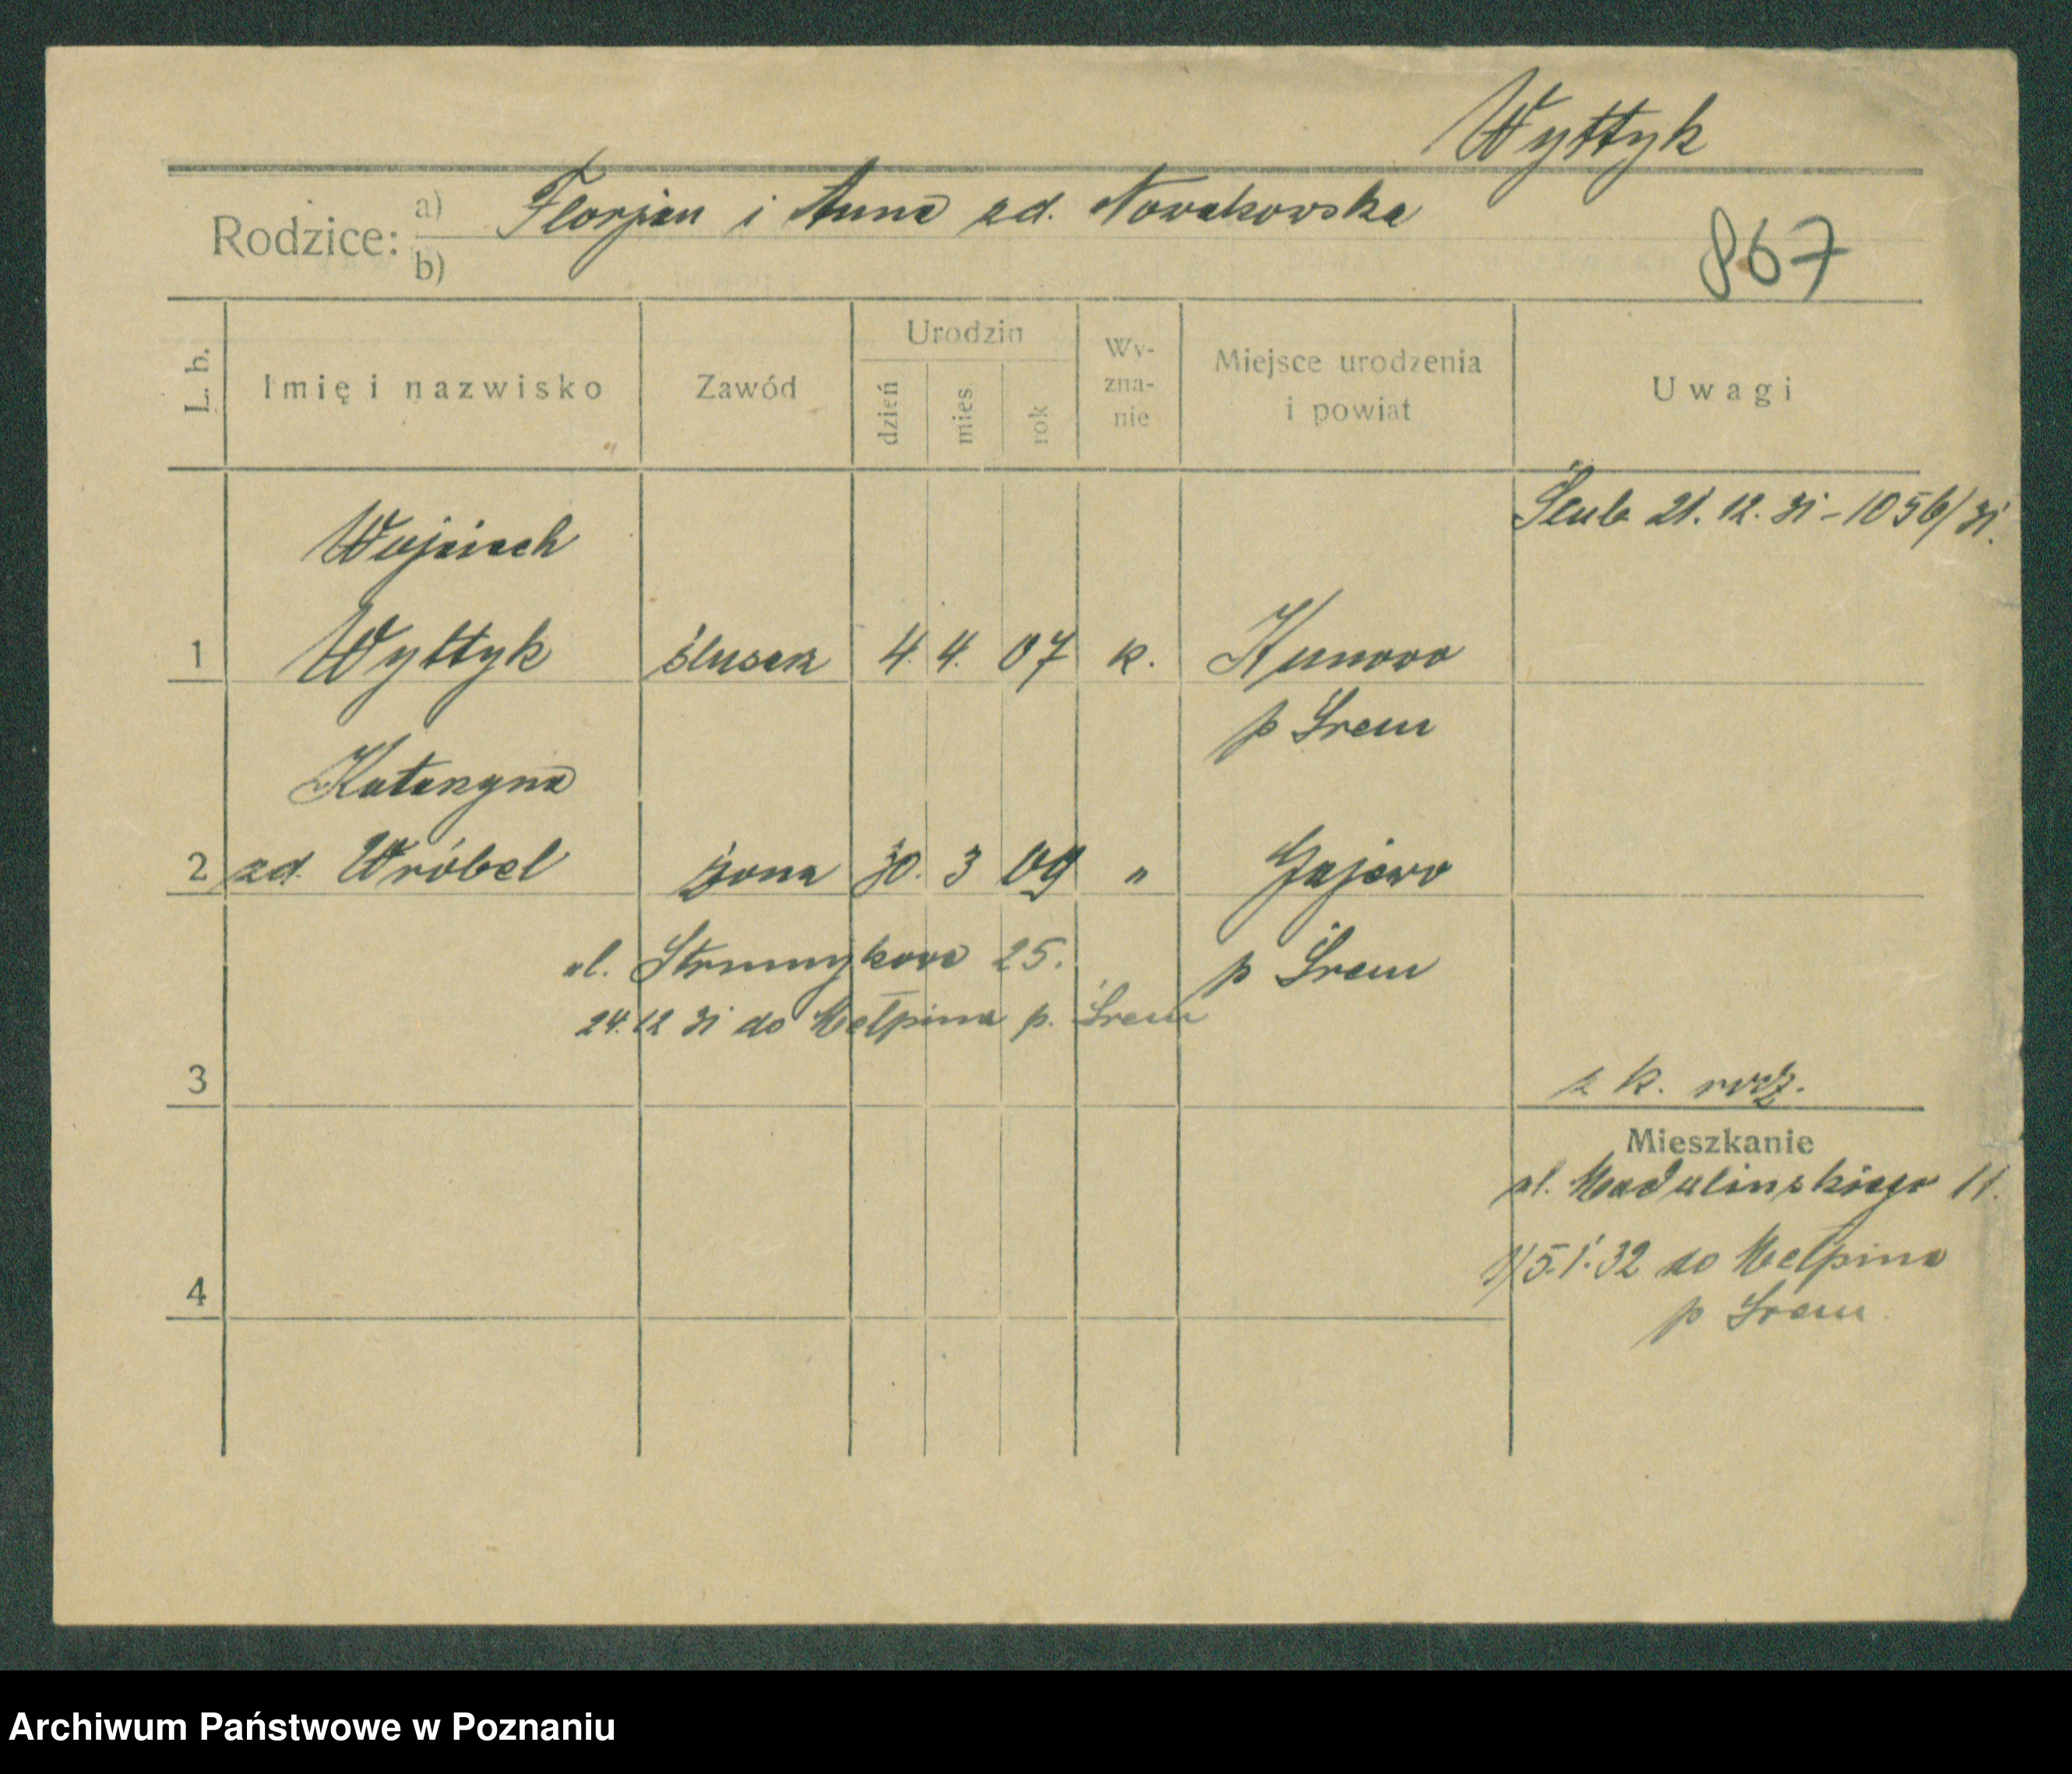 Wyttyk
Rodzice: a) Florjan i Anna zd. Nowakowska
b)
867
L. b. Imię i nazwisko Zawód Urodzin dzień mies rok Wy-zna-nie Miejsce urodzenia i powiat Uwagi
Ślub 21. 12. 31 - 1056/31.
Wojciech
1 Wyttyk ślusarz 4. 4. 07 k. Kunowo
p Śrem
Katarzyna
2 zd. Wróbel żona 30. 3 09 " Gajewo
ul. Strumykowa 25. p Śrem
24.12 31 do Mełpina p. Śrem
3 z k. rodz.
Mieszkanie
ul. Madalinskiego 11.
5.1.32 do Mełpina
4
p Śrem
Archiwum Państwowe w Poznaniu